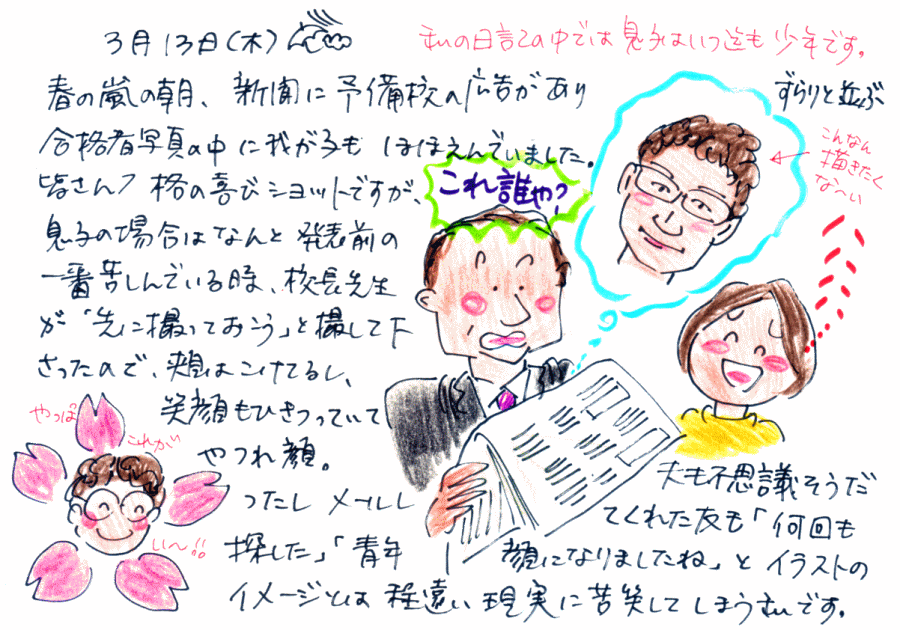 3月13日(木)
私の日記の中では息子はいつ迄も少年です。
春の嵐の朝、新聞に予備校の広告があり ずらりと並ぶ
合格者写真の中に我が子もほほえんでいました。
皆さん 格の喜びショットですが、
息子の場合はなんと発表前の
一番苦しんでいる時、校長先生
が「先に撮っておこう」と撮して下
さったので、頬はこけてるし、
笑顔もひきつっていて
やつれ顔。 夫も不思議そうだ
ったし メールし てくれた友も「何回も
探した」「青年 顔になりましたね」とイラストの
イメージとは程遠い現実に苦笑してしまう私です。
これ誰や?
こんなん
描きたく
な〜い
やっぱ
これが
い〜!!